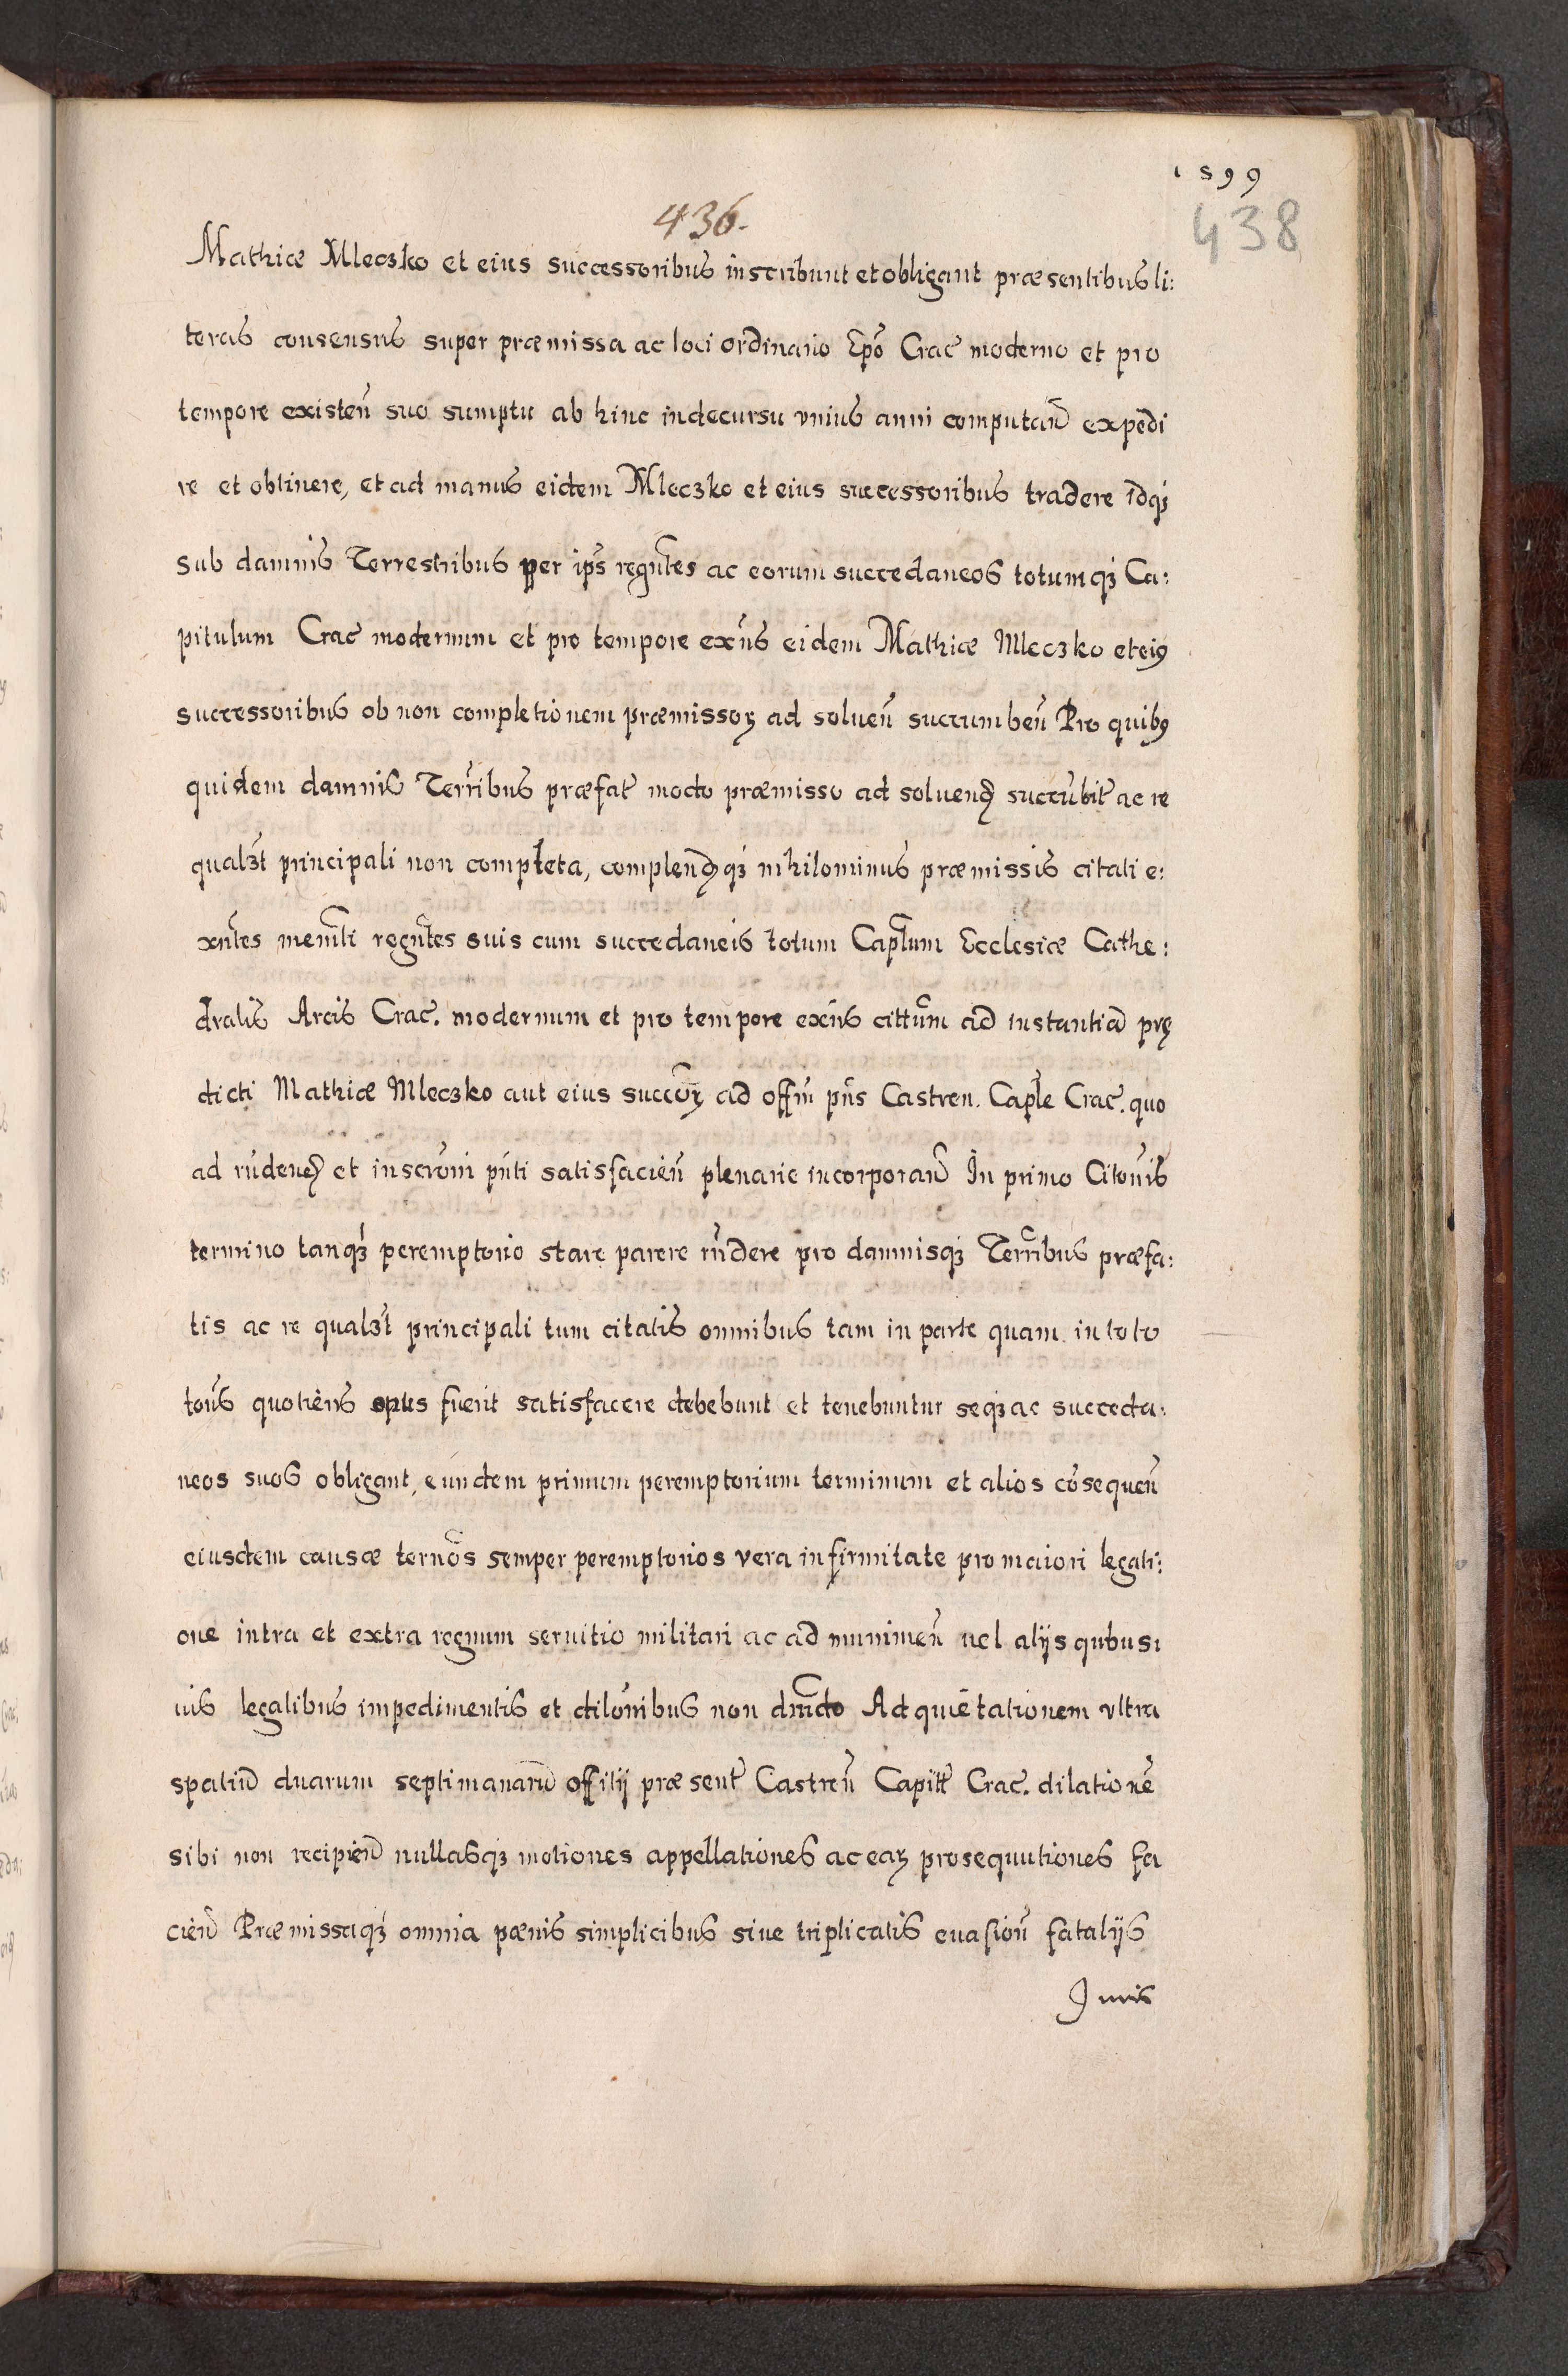 1599
436.
438
Mathiæ Mleczko et eius successoribus inscribunt et obligant præsentibus li:
teras consensus super præmissa ac loci ordinario Epō Crac̄ moderno et pro
tempore existeñ suo sumptu ab hinc in decursu vnius anni computañ expedi
re et obtinere, et ad manus eidem Mleczko et eius successoribus tradere idq́
sub damnis Terrestribus per ip̄s regn̄tes ac eorum succedaneos totumq́ Ca:
pitulum Crac̄ modernum et pro tempore exñs eidem Mathiæ Mleczko et eiꝰ
successoribus ob non completionem præmissoꝝ ad solueñ succumbeñ Pro quibꝰ
quidem damnis Terr̄ibus præfat̄ modo præmisso ad soluenđ succūbit̄ ac re
qualꝫt principali non completa, complendꝫq́ nihilominus præmissis citati e:
xn̄tes mem̄ti regn̄tes suis cum succedaneis totum Cap̄tum Ecclesiæ Cathe:
dralis Arcis Crac̄. modernum et pro tempore exñs citt̄um ad instantiā prę
dicti Mathiæ Mleczko aut eius succōꝝ ad off̄m pñs Castren. Cap̄le Crac̄. quo
ad rñdenđ et inscrōni pñti satisfacieñ plenarie incorporañ In primo Citōnis
termino tanq́ peremptorio stare parere rñdere pro damnisq́ Terr̄ibus præfa:
tis ac re qualꝫt principali tum citatis omnibus tam in parte quam in toto
toñs quotiens opus fuerit satisfacere debebunt et tenebuntur seq́ ac succeda:
neos suos obligant, eundem primum peremptorium terminum et alios cōsequeñ
eiusdem causæ tern̄os semper peremptorios vera infirmitate pro maiori legati:
one intra et extra regnum seruitio militari ac ad munimeñ uel alijs qubusi
uis legalibus impedimentis et dilōnibus non dm̄do Ad quietationem vltra
spatiū duarum septimanarū offitij præsent̄ Castreñ Capitt̄ Crac̄. dilationē
sibi non recipieñ nullasq́ motiones appellationes ac eaꝝ prosequutiones fa
cieñ Præmissaq́ omnia pænis simplicibus siue triplicatis euasioñ fatalijs
Juris